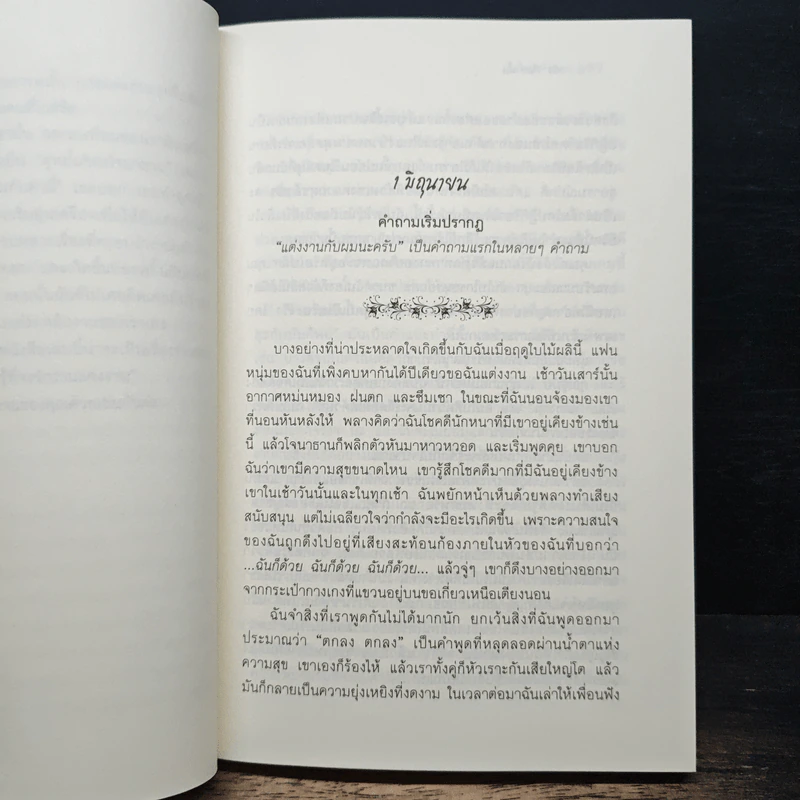 1 มิถุนายน
คำถามเริ่มปรากฏ
“แต่งงานกับผมนะครับ” เป็นคำถามแรกในหลายๆ คำถาม
บางอย่างที่น่าประหลาดใจเกิดขึ้นกับฉันเมื่อฤดูใบไม้ผลินี้ แฟน
หนุ่มของฉันที่เพิ่งคบหากันได้ปีเดียวขอฉันแต่งงาน เช้าวันเสาร์นั้น
อากาศหม่นหมอง ฝนตก และซึมเซา ในขณะที่ฉันนอนจ้องมองเขา
ที่นอนหันหลังให้ พลางคิดว่าฉันโชคดีนักหนาที่มีเขาอยู่เคียงข้างเช่น
นี้ แล้วโจนาธานก็พลิกตัวหันมาหาวหวอด และเริ่มพูดคุย เขาบอก
ฉันว่าเขามีความสุขขนาดไหน เขารู้สึกโชคดีมากที่มีฉันอยู่เคียงข้าง
เขาในเช้าวันนั้นและในทุกเช้า ฉันพยักหน้าเห็นด้วยพลางทำเสียง
สนับสนุน แต่ไม่เฉลียวใจว่ากำลังจะมีอะไรเกิดขึ้น เพราะความสนใจ
ของฉันถูกดึงไปอยู่ที่เสียงสะท้อนก้องภายในหัวของฉันที่บอกว่า
...ฉันก็ด้วย ฉันก็ด้วย ฉันก็ด้วย... แล้วจู่ๆ เขาก็ดึงบางอย่างออกมา
จากกระเป๋ากางเกงที่แขวนอยู่บนขอเกี่ยวเหนือเตียงนอน
ฉันจำสิ่งที่เราพูดกันไม่ได้มากนัก ยกเว้นสิ่งที่ฉันพูดออกมา
ประมาณว่า “ตกลง ตกลง” เป็นคำพูดที่หลุดลอดผ่านน้ำตาแห่ง
ความสุข เขาเองก็ร้องไห้ แล้วเราทั้งคู่ก็หัวเราะกันเสียใหญ่โต แล้ว
มันก็กลายเป็นความยุ่งเหยิงที่งดงาม ในเวลาต่อมาฉันเล่าให้เพื่อนฟัง